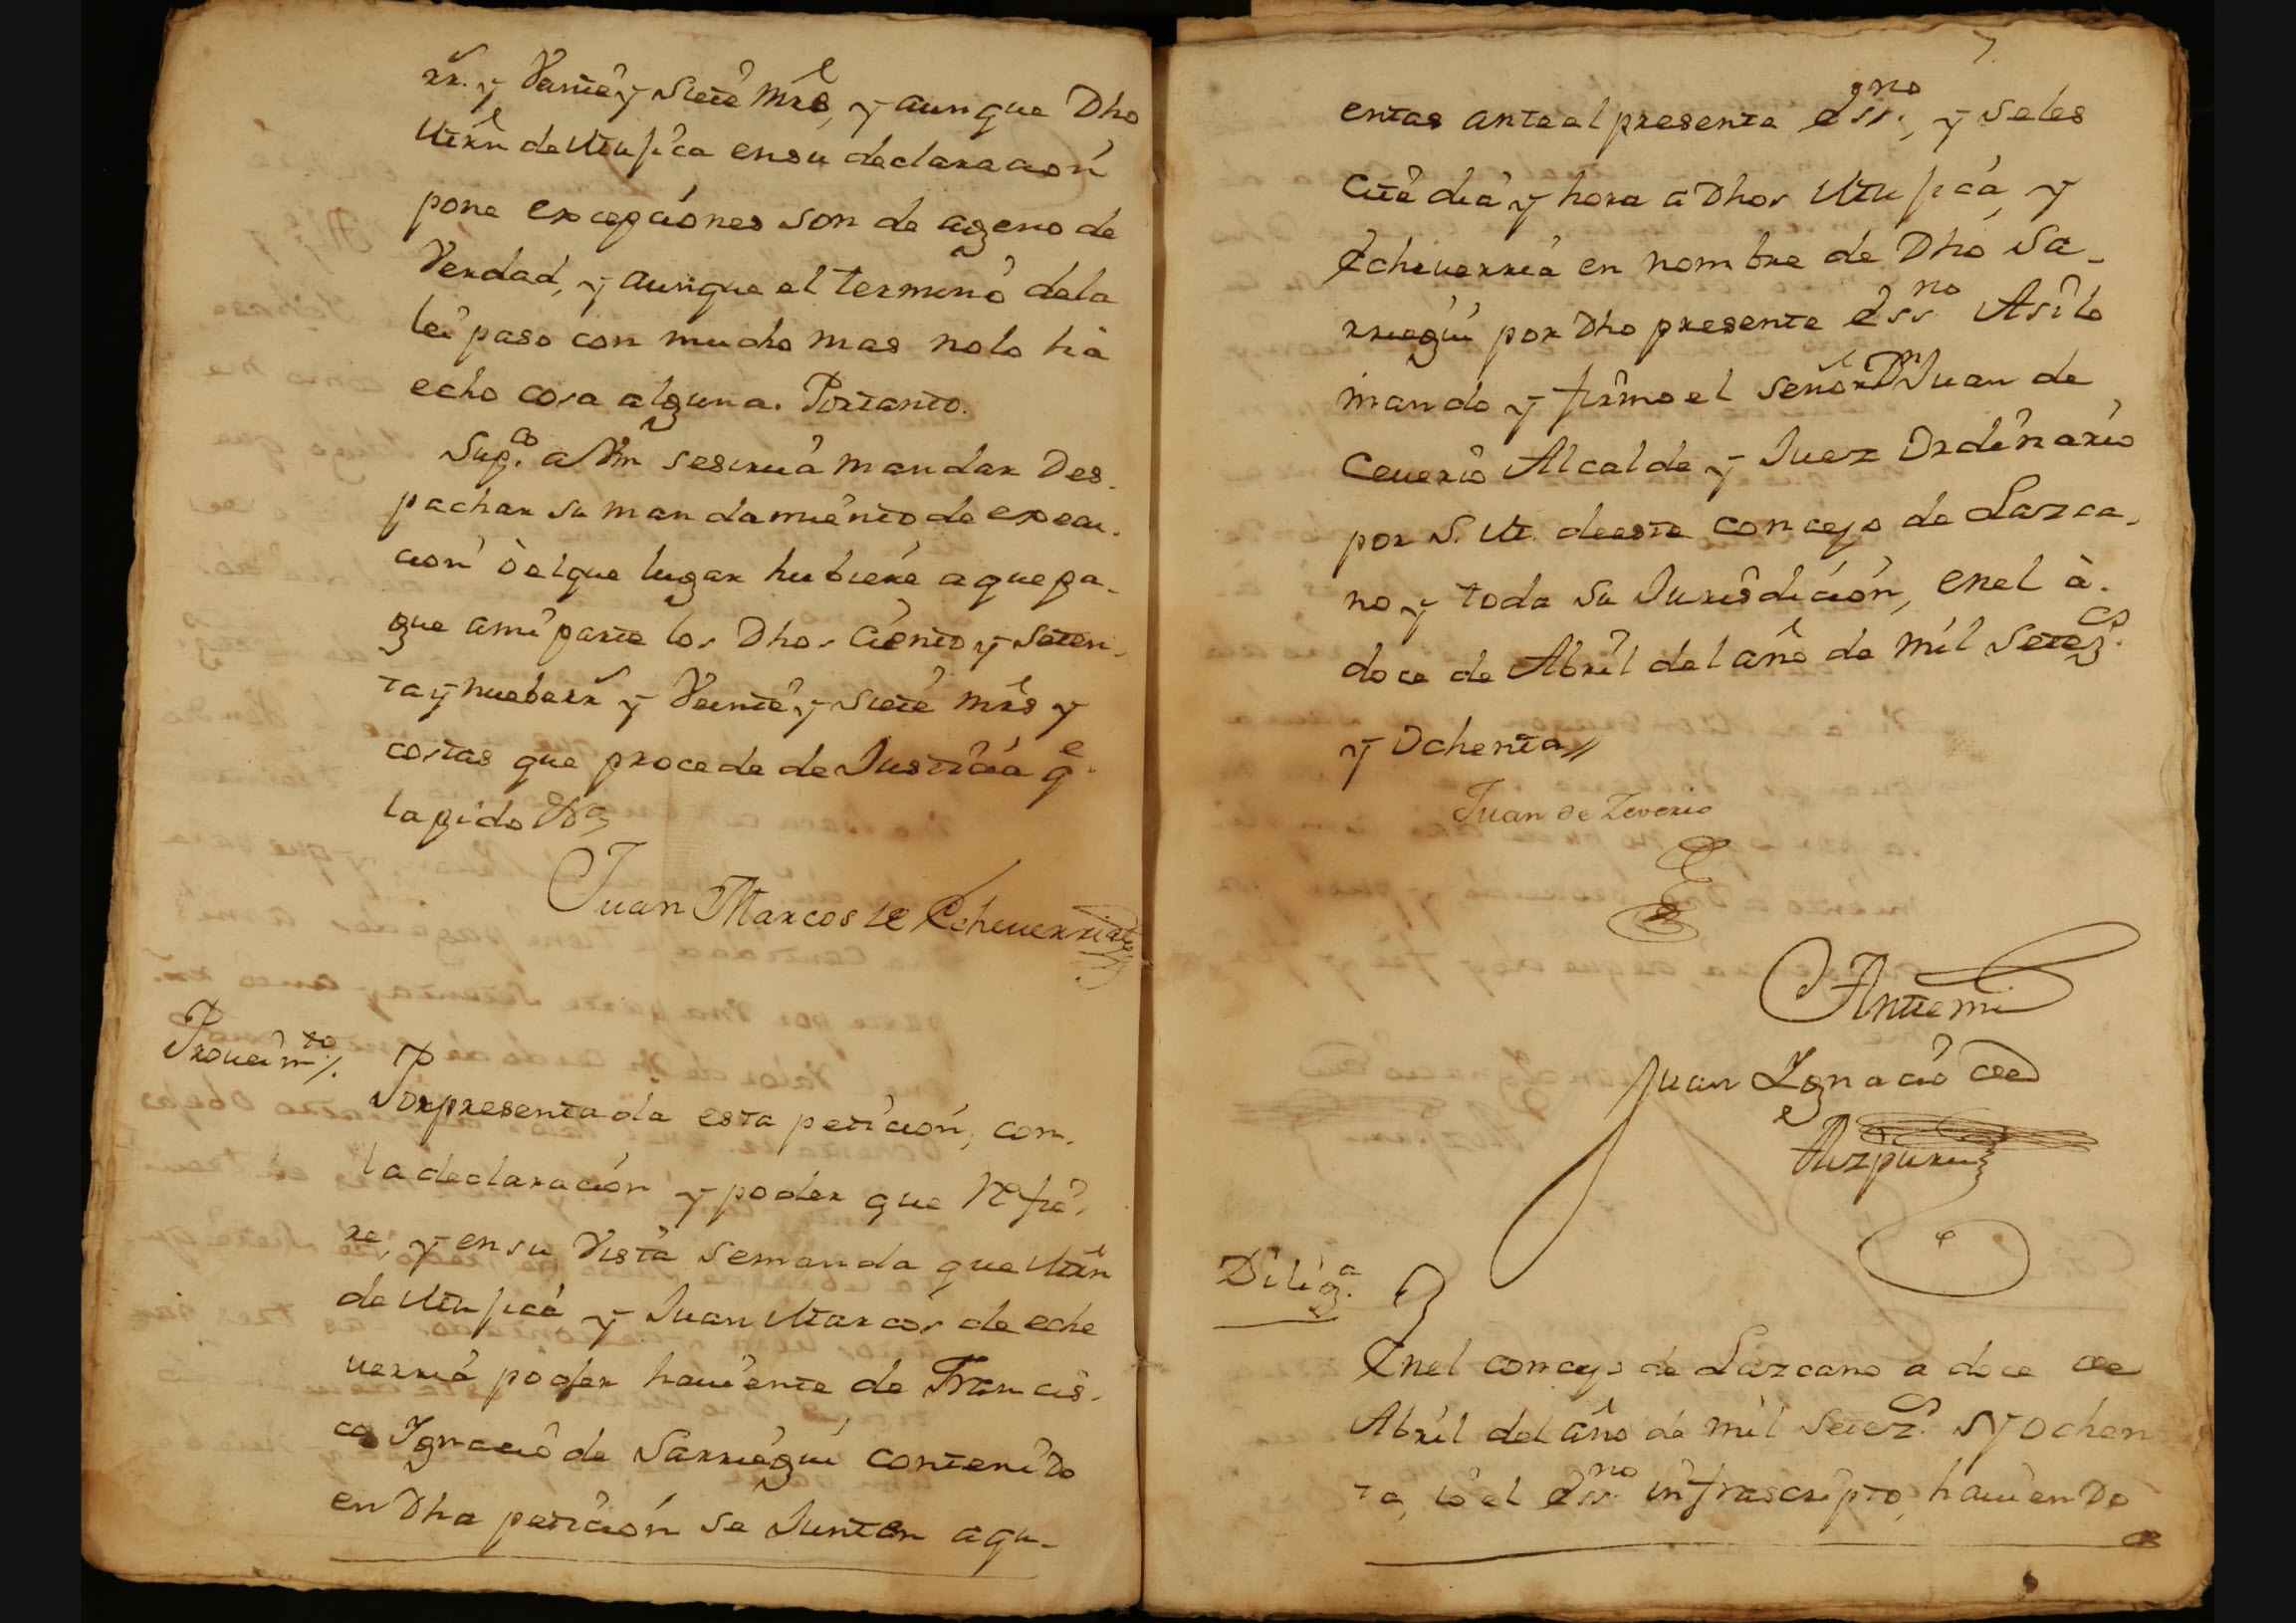 rr.ˢ y Veinte y siete mrs, y aunque Dho
Mrn de Mujica en su declaracion
pone excepciones son de ageno de
Verdad, y aunque el termino dela
lei paso con mucho mas nolo hà
echo cosa alguna. Portanto.
Sup.co a Vm sesirua mandar Des-
pachar su mandamiento de execu-
cion ò elque lugar hubiere aquepa-
gue ami parte los Dhos Ciento y seten-
ta y nuebe rr.ˢ y Veinte y siete mrs y
costas que procede de Justicia q.e
la pido &a
Juan Marcos de Echeuerria
Proueim.to/.
Porpresentada esta peticion, con
la declaracion y poder que refie-
re, y en su Vista semanda que Mrn
de Mujica y Juan Marcos de eche
uerria poder hauiente de Francis-
co Ignacio de Sarriegui contenido
en Dha peticion se Junten aqu-
7.
entas anteel presente ess.no, y seles
cite dia y hora a Dhos Mujica y
Echeuerria en nombre de Dho Sa-
rriegui por Dho presente Ess.no Asi lo
mando y firmo el señor Dn Juan de
Ceuerio Alcalde y Juez Ordinario
por S. M. deeste concejo de Lazca-
no y toda su Jurisdicion, enel à
doce de Abril del año de mil setez.cs
y Ochenta//
Juan de Zeverio
Antemi
Juan Ignacio de
Aizpuru
Dilig.a
Enel concejo de Lazcano a doce de
Abril del año de mil setez.cs y ochen
ta, io el Ess.no infrascripto, hauiendo